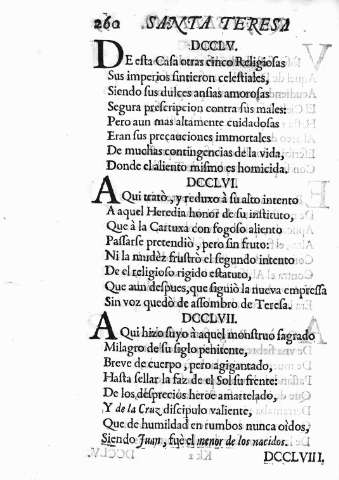 260 SANTA TERESA
DCCLV.
DE esta Casa otras cinco Religiosas
Sus imperios sintieron celestiales,
Siendo sus dulces ansias amorosas
Segura prescripcion contra sus males:
Pero aun mas altamente cuidadosas
Eran sus precauciones immortales
De muchas contingencias de la vida,
Donde el aliento mismo es homicida.
DCCLVI.
AQui tratò, y reduxo à su alto intento
A aquel Heredia honor de su instituto,
Que à la Cartuxa con fogoso aliento
Passarse pretendiò, pero sin fruto:
Ni la nudèz frustrò el segundo intento
De el religioso rigido estatuto,
Que aun despues, que siguiò la nueva empressa
Sin voz quedò de assombro de Teresa.
DCCLVII.
AQui hizo suyo à aquel monstruo sagrado
Milagro de su siglo penitente,
Breve de cuerpo, pero agigantado,
Hasta sellar la faz de el Sol su frente:
De los desprecios heroe amartelado,
Y de la Cruz discipulo valiente,
Que de humildad en rumbos nunca oidos,
Siendo Juan, fuè el menor de los nacidos.
DCCLVIII.